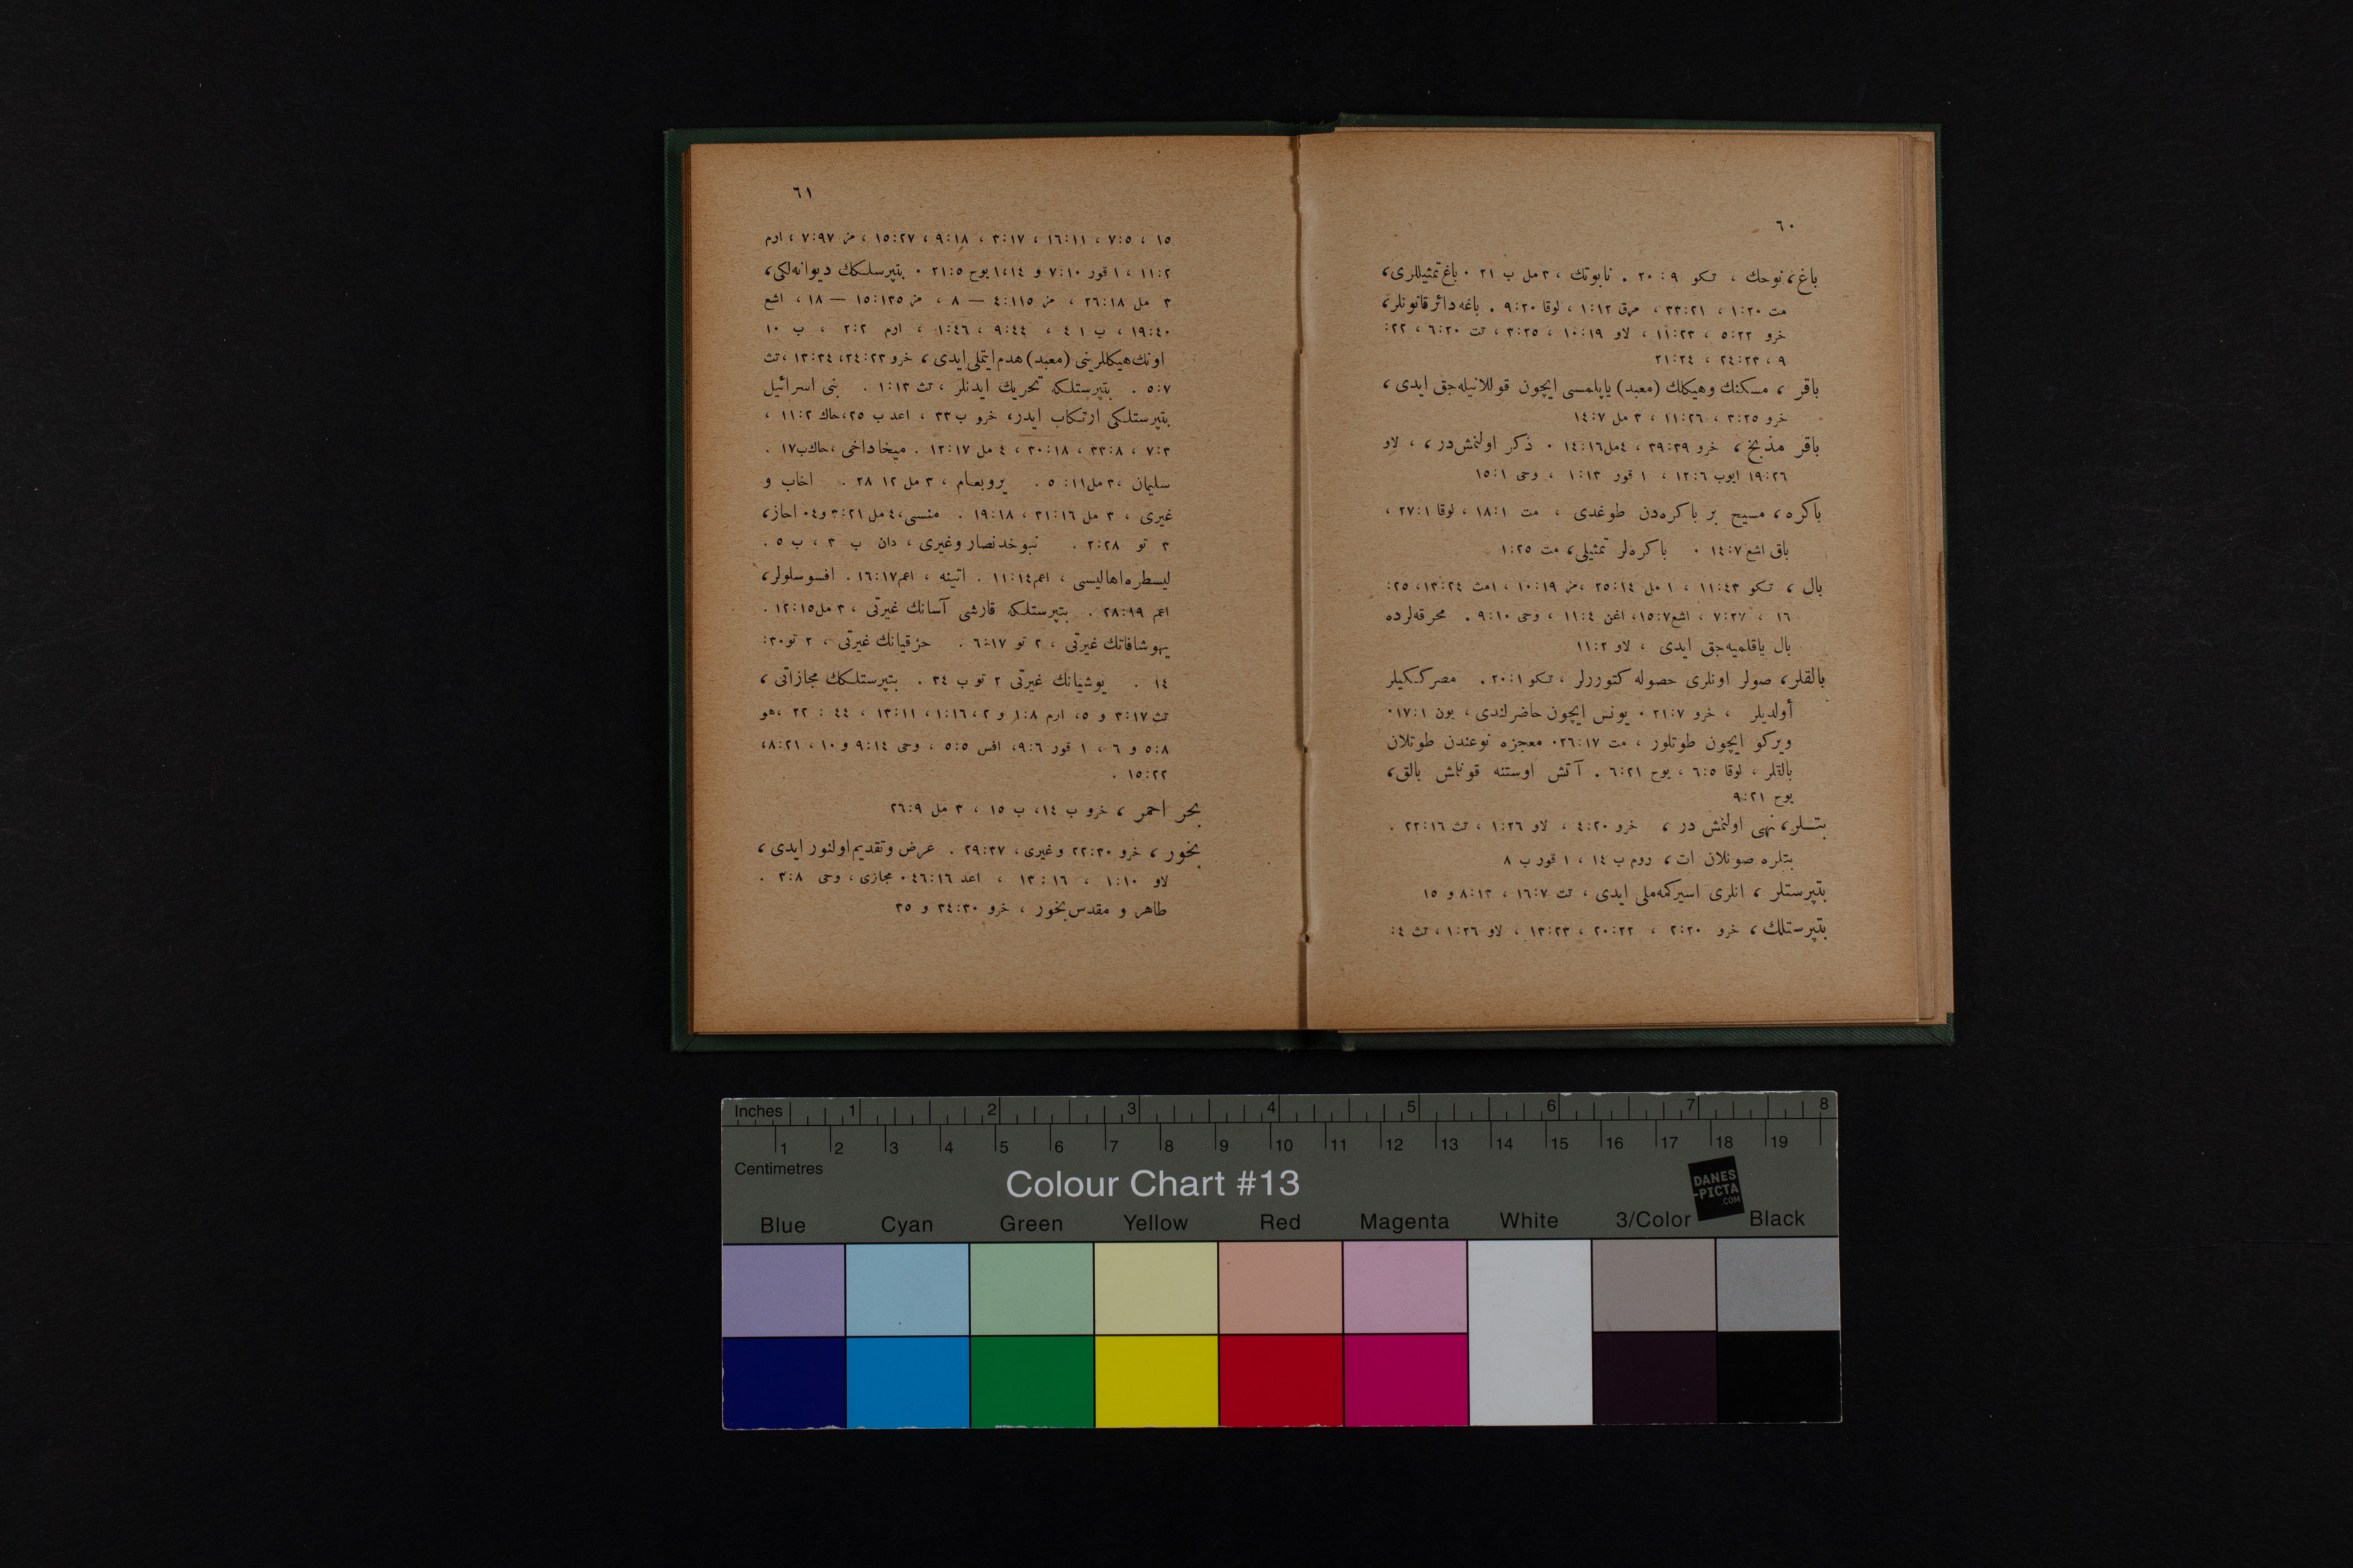 ٦٠
باغ، نوحك ، تكو ٩ : ٢٠ . نابوتك ، ٣ مل ب ٢١ . باغ تمثيللرى،
مت ٢٠:١ ، ٢١:٣٣ ، مرق ١٢:١ ، لوقا ٢٠:٩ . باغه دائر قانونلر،
خرو ٢٢:٥ ، ٢٣:١١ ، لاو ١٩:١٠ ، ٢٥:٣ ، تث ٢٠:٦ ، ٢٢:
٩ ، ٢٣:٢٤ ، ٢٤:٢١
باقر ، مسكنك وهيكلك (معبد) ياپلمسى ايچون قوللانيله‌جق ايدى ،
خرو ٢٥:٣ ، ٢٦:١١ ، ٣ مل ٧:١٤
باقر مذبح، خرو ٣٩:٣٩ ، ٤مل١٦:١٤ . ذكر اولنمش‌در ، ، لاو
٢٦:١٩ ايوب ٦:١٢ ، ١ قور ١٣:١ ، وحى ١:١٥
باكره، مسيح بر باكره‌دن طوغدى ، مت ١:١٨ ، لوقا ١:٢٧ ،
باق اشع ٧:١٤ . باكره‌لر تمثيلى، مت ٢٥:١
بال ، تكو ٤٣:١١ ، ١ مل ١٤:٢٥ ،مز ١٩:١٠ ، امث ٢٤:١٣، ٢٥:
١٦ ، ٢٧:٧ ، اشع٧:١٥، اغن ٤:١١ ، وحى ١٠:٩ . محرقه‌لرده
بال ياقلميه‌جق ايدى ، لاو ٢:١١
بالقلر، صولر اونلرى حصوله كتوررلر ، تكو ١:٢٠ . مصركـكيلر
أولديلر ، خرو ٧:٢١ . يونس ايچون حاضرلندى ، يون ١:١٧.
ويركو ايچون طوتلور ، مت ١٧:٢٦. معجزه نوعندن طوتلان
بالقلر ، لوقا ٥:٦ ، يوح ٢١:٦ . آتش اوستنه قونلمش بالق،
يوح ٢١:٩
بتـلر، نهى اولنمش در ، خرو ٢٠:٤ ، لاو ٢٦:١ ، تث ١٦:٢٢ .
بتلره صونلان ات، روم ب ١٤ ، ١ قور ب ٨
بتپرستلر ، انلرى اسيركمه‌ملى ايدى ، تث ٧:١٦ ، ١٣:٨ و ١٥
بتپرستلك، خرو ٢٠:٢ ، ٢٢:٢٠ ، ٢٣:١٣ ، لاو ٢٦:١ ، تث ٤:
٦١
١٥ ، ٥:٧ ، ١١:١٦ ، ١٧:٣ ، ١٨:٩ ، ٢٧:١٥ ، مز ٩٧:٧ ، ارم
٢:١١ ، ١ قور ١٠:٧ و ١٤،١ يوح ٥:٢١ . بتپرسلكك ديوانه‌لكى،
٣ مل ١٨:٢٦ ، مز ١١٥:٤ — ٨ ، مز ١٣٥:١٥ — ١٨ ، اشع
٤٠:١٩ ، ب ٤١ ، ٤٤:٩ ، ٤٦:١ ، ارم ٢:٢ ، ب ١٠
اونك هيكللرينى (معبد) هدم ايتملى ايدى ، خرو ٢٣:٢٤، ٣٤:١٣ ،تث
٧:٥ . بتپرستلكه تحريك ايدنلر ، تث ١٣:١ . بنى اسرائيل
بتپرستلكى ارتكاب ايدر، خرو ب ٣٣ ، اعد ب ٢٥،حاك ٢:١١ ،
٣:٧ ، ٨:٣٣ ، ١٨:٣٠ ، ٤ مل ١٧:١٢ . ميخا داخى ،حاك‌ب١٧ .
سليمان ،٣ مل١١: ٥ . يروبعام ، ٣ مل ١٢ ٢٨ . اخاب و
غيرى ، ٣ مل ١٦:٣١ ، ١٨:١٩ . منسى،٤ مل ٢١:٣ و ٤. احاز،
٢ تو ٢٨:٢ . نبوخدنصار وغيرى ، دان ب ٣ ، ب ٥ .
ليسطره اهاليسى ، اعم١٤:١١ . اتينه ، اعم١٧:١٦ . افسوسلولر،
اعم ١٩:٢٨ . بتپرستلكه قارشى آسانك غيرتى ، ٣ مل١٥:١٢ .
يهوشافاتك غيرتى ، ٢ تو ١٧:٦ . حزقيانك غيرتى ، ٢ تو٣٠:
١٤ . يوشيانك غيرتى ٢ تو ب ٣٤ . بتپرستلكك مجازاتى ،
تث١٧:٣ و ٥، ارم ٨:١ و ٢، ١٦:١، ١١:١٣ ، ٤٤ : ٢٢ ،هو
٨:٥ و ٦ ، ١ قور ٦:٩، افس ٥:٥ ، وحى ١٤:٩ و ١٠ ، ٢١:٨،
٢٢:١٥ .
بحر احمر ، خرو ب ١٤، ب ١٥ ، ٣ مل ٩:٢٦
بخور ، خرو ٣٠:٢٢ وغيرى، ٣٧:٢٩ . عرض وتقديم اولنور ايدى ،
لاو ١٠:١ ، ١٦:١٣ ، اعد ١٦:٤٦. مجازى ، وحى ٨:٣ .
طاهر و مقدس بخور ، خرو ٣٠:٣٤ و ٣٥
Inches 1 2 3 4 5 6 7 8
1 2 3 4 5 6 7 8 9 10 11 12 13 14 15 16 17 18 19
Centimetres
Colour Chart #13
DANES
-PICTA
.COM
Blue Cyan Green Yellow Red Magenta White 3/Color Black